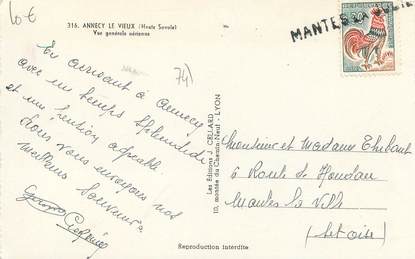 10 €
316. ANNECY LE VIEUX (Haute Savoie)
Vue générale aérienne
MANTES LA JOLIE
74
En arrivant à Annecy
avec un temps splendide
et une réunion agréable
Nous vous envoyons nos
meilleurs souvenirs
Les Editions J. CELLARD
10, montée du Chemin-Neuf - LYON
Monsieur et Madame Thibault
Route de Houdan
Mantes la Ville
(Set Oise)
Reproduction interdite